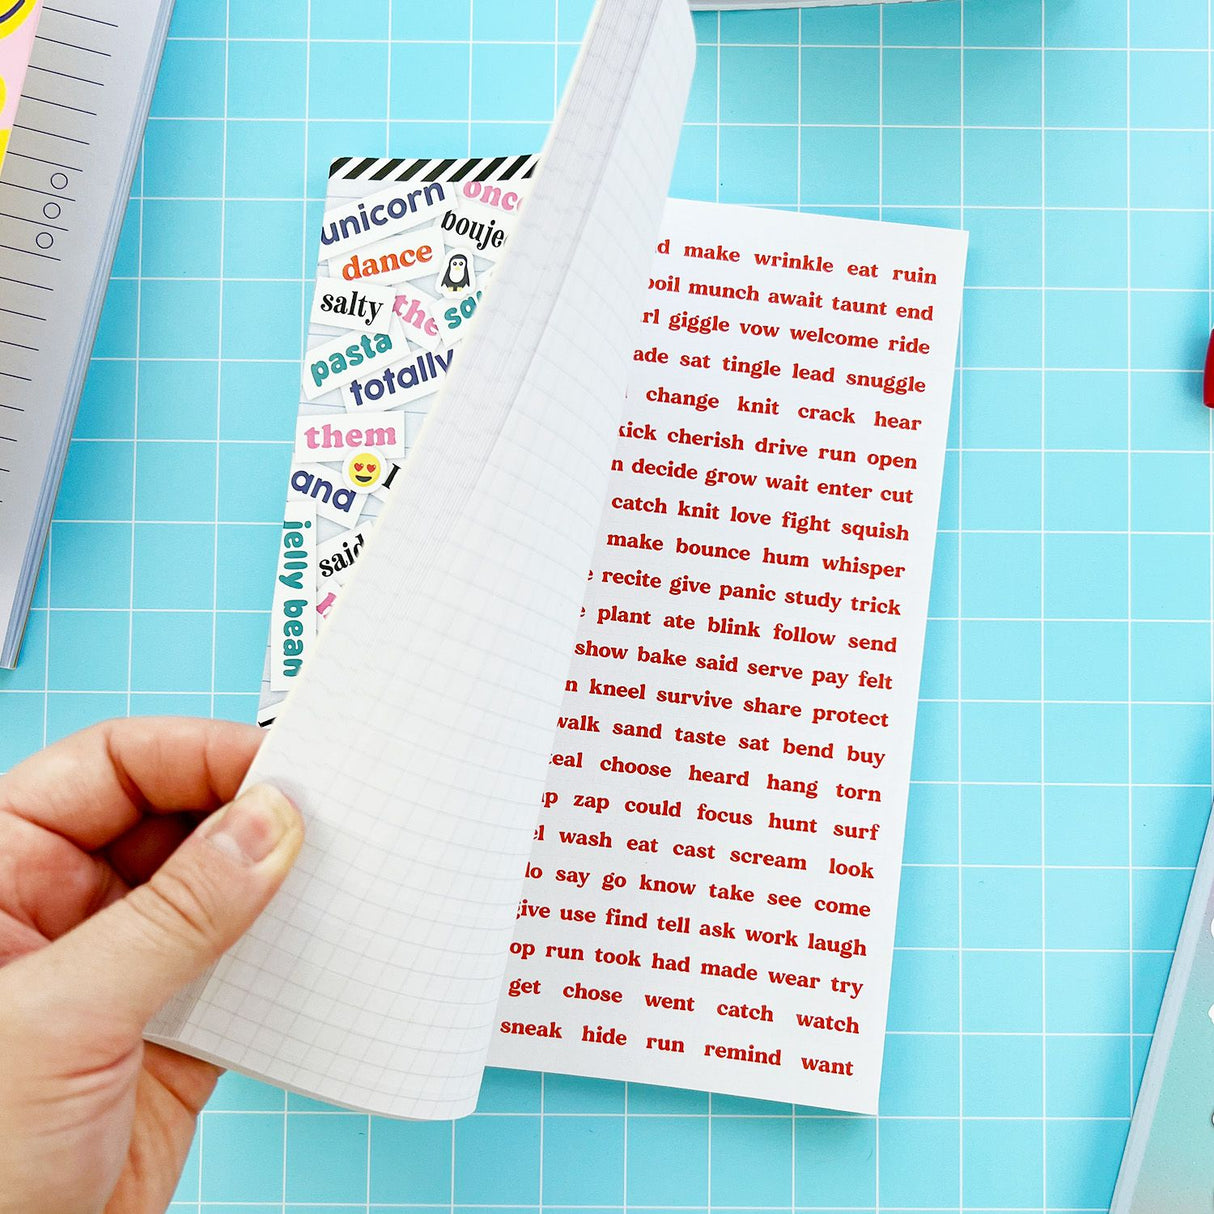 unicorn
dance
salty
the
pasta
totally
them
and
said
jelly bean
make wrinkle eat ruin
munch await taunt end
giggle vow welcome ride
sat tingle lead snuggle
change knit crack hear
kick cherish drive run open
decide grow wait enter cut
catch knit love fight squish
make bounce hum whisper
recite give panic study trick
plant ate blink follow send
show bake said serve pay felt
kneel survive share protect
walk sand taste sat bend buy
choose heard hang torn
zap could focus hunt surf
wash eat cast scream look
say go know take see come
give use find tell ask work laugh
run took had made wear try
get chose went catch watch
sneak hide run remind want